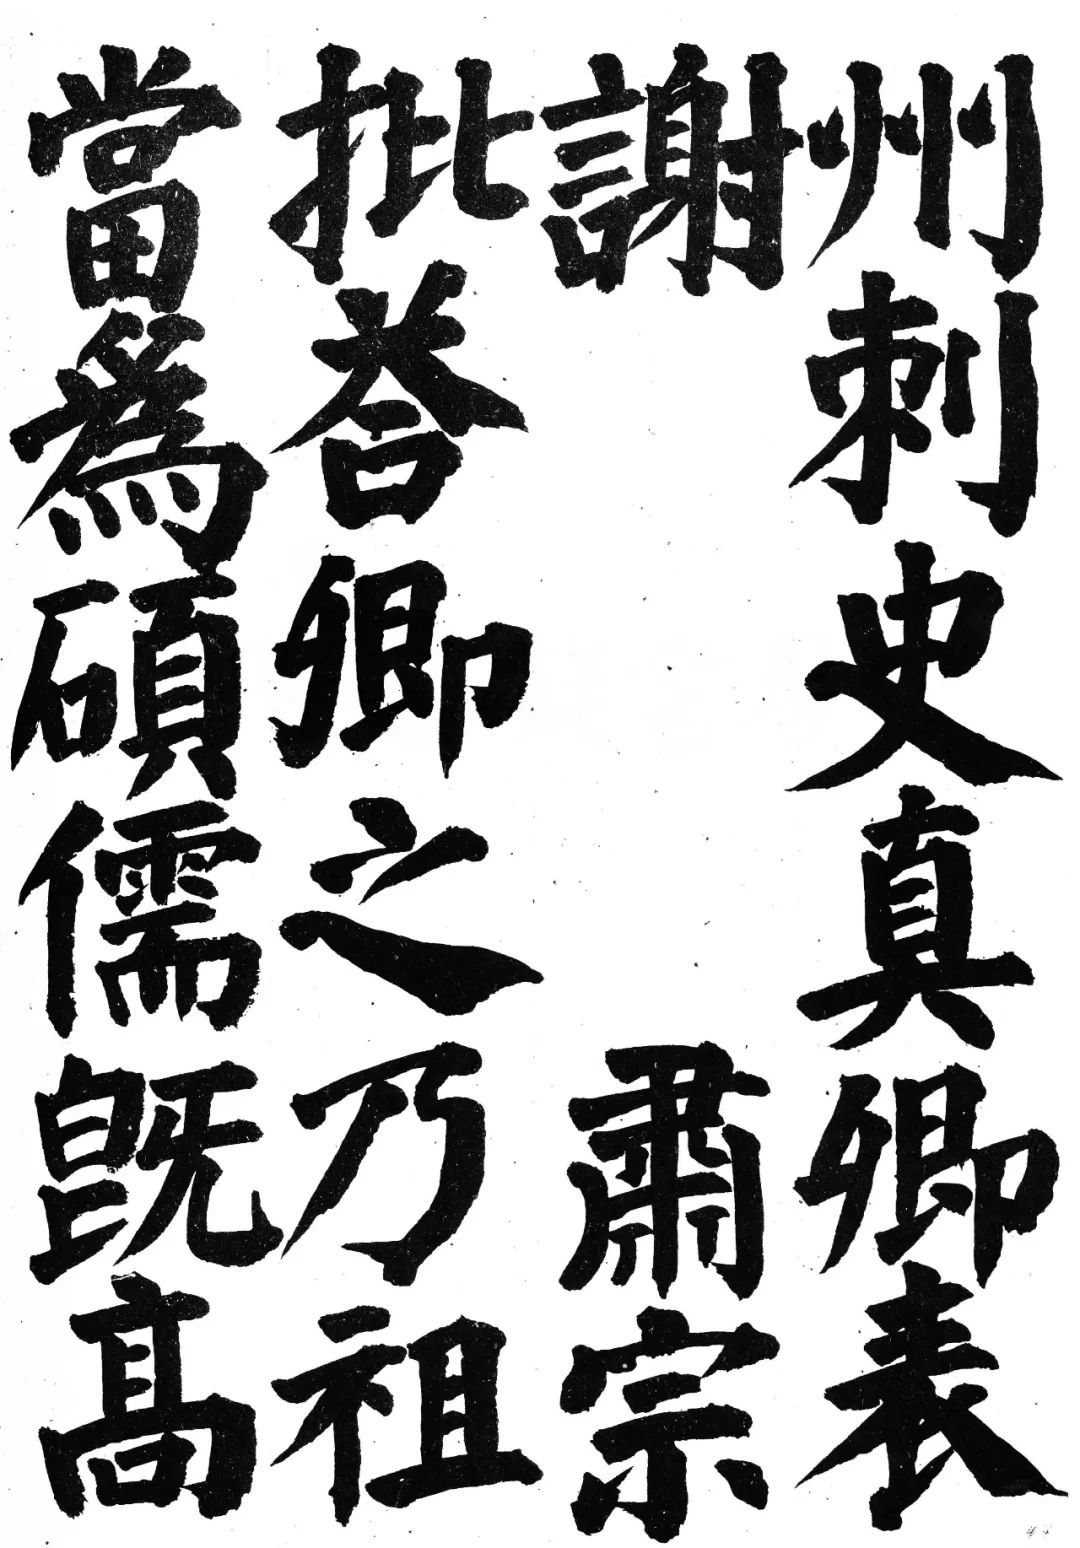 州刺史真卿表
謝 肅宗
批荅卿之乃祖
當爲碩儒既高